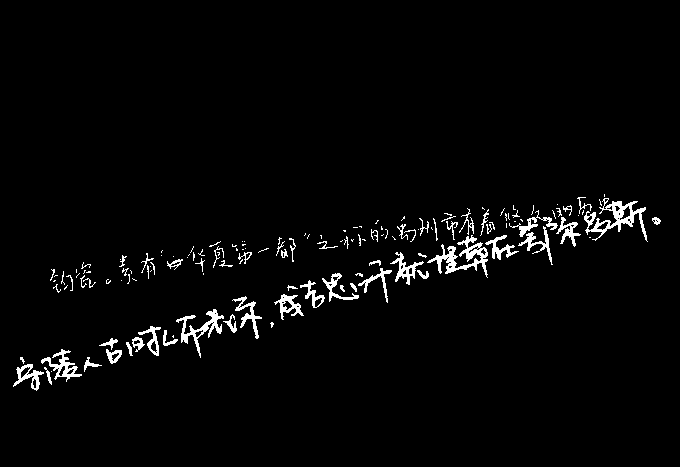 钧瓷。素有“华夏第一都”之称的禹州市有着悠久的历史
守陵人古日扎布表示，成吉思汗就埋葬在鄂尔多斯。